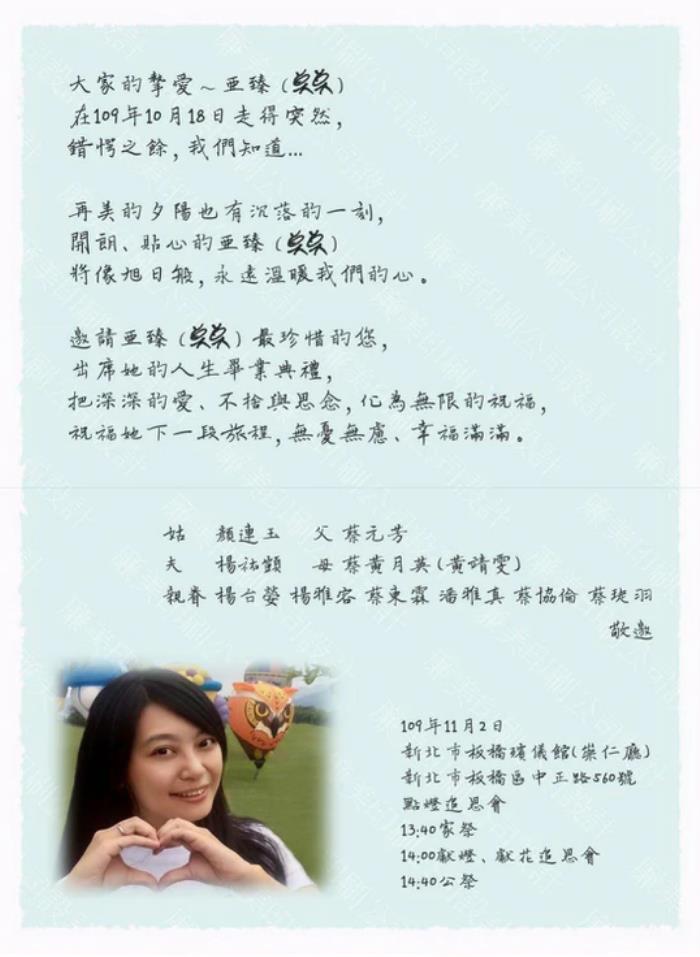 大家的摯愛~亞臻(
在109年10月18日走得突然,
錯愕之餘,我們知道...
再美的夕陽也有沉落的一刻,
開朗、貼心的亞臻(
將像旭日般,永遠溫暖我們的心。
邀請亞臻( )最珍惜的您,
出席她的人生畢業典禮,
把深深的愛、不捨與思念,化為無限的祝福,
祝福她下一段旅程,無憂無慮、幸福滿滿。
姑 顏連玉 父 蔡元芳
夫 楊祐顗 母 蔡黃月英(黃靖雯)
親眷 楊台嫈 楊雅容 蔡東霖 潘雅真 蔡協倫 蔡琁羽
敬邀
109年11月2日
新北市板橋殯儀館(崇仁廳)
新北市板橋區中正路560號
點燈追思會
13:40家祭
14:00獻燈、獻花追思會
14:40公祭